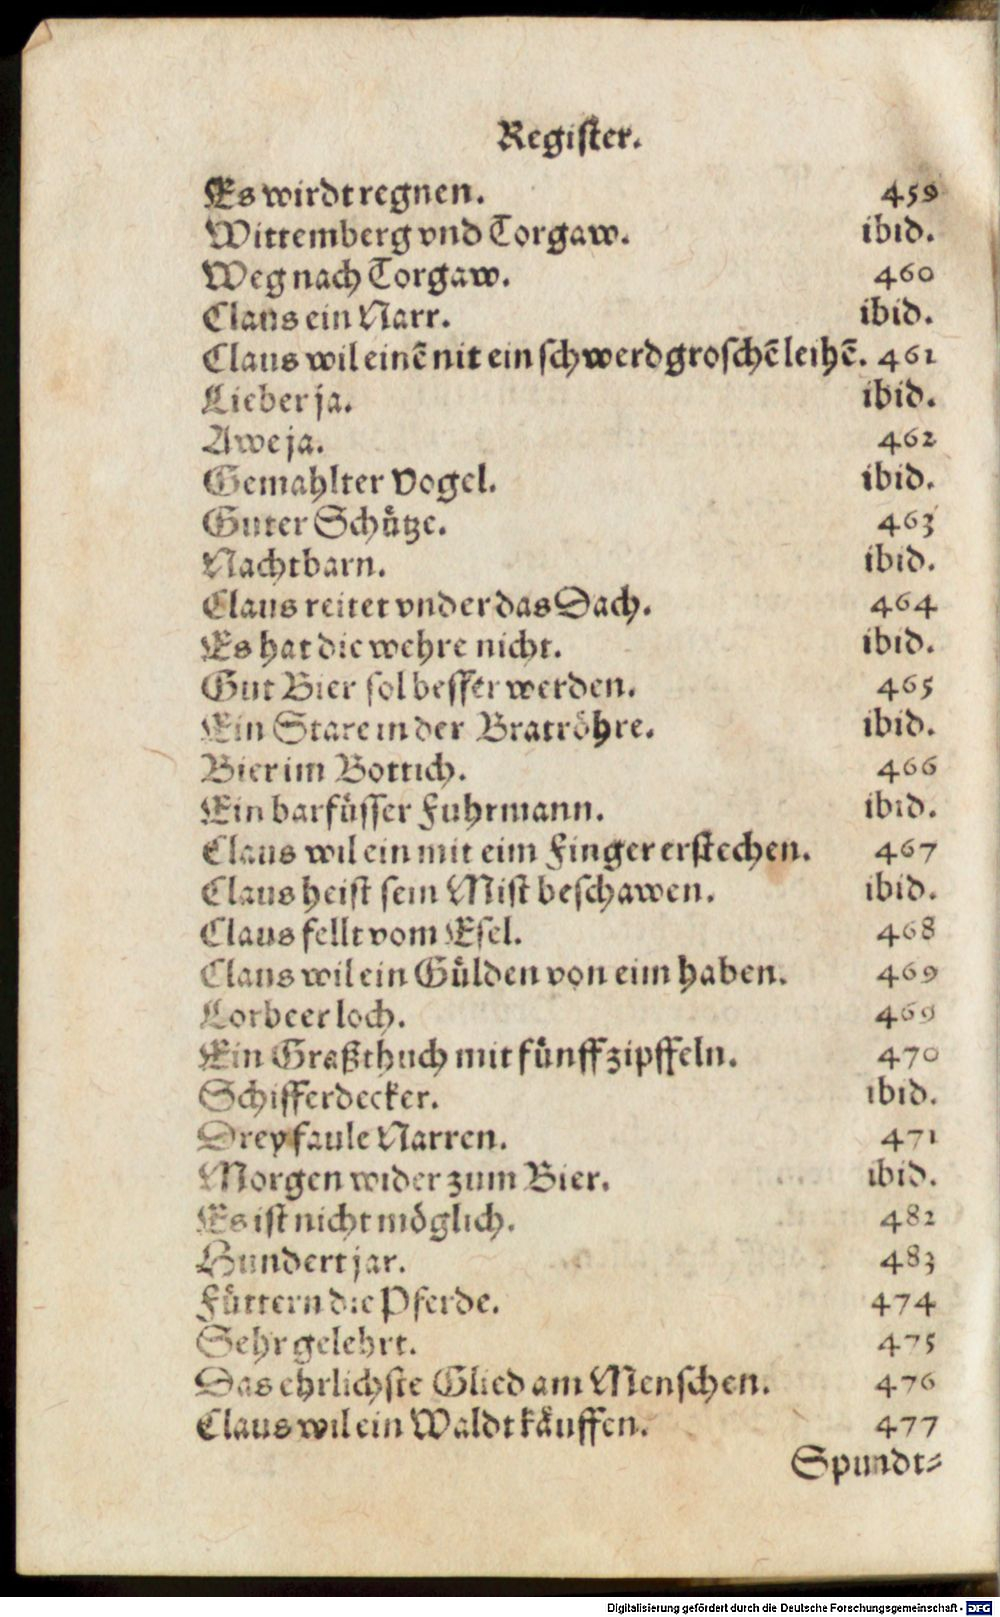 Register.
Es wirdt regnen. 459
Wittemberg vnd Torgaw. ibid.
Weg nach Torgaw. 460
Claus ein Narr. ibid.
Claus wil einē nit ein schwerdgroschē leihē. 461
Lieber ja. ibid.
Awe ja. 462
Gemahlter Vogel. ibid.
Guter Schütze. 463
Nachtbarn. ibid.
Claus reitet vnder das Dach. 464
Es hat die wehre nicht. ibid.
Gut Bier sol besser werden. 465
Ein Stare in der Bratröhre. ibid.
Bier im Bottich. 466
Ein barfüsser Fuhrmann. ibid.
Claus wil ein mit eim Finger erstechen. 467
Claus heist sein Mist beschawen. ibid.
Claus fellt vom Esel. 468
Claus wil ein Gülden von eim haben. 469
Lorbeerloch. 469
Ein Graßthuch mit fünff zipffeln. 470
Schifferdecker. ibid.
Drey faule Narren. 471
Morgen wider zum Bier. ibid.
Es ist nicht möglich. 482
Hundert jar. 483
Füttern die Pferde. 474
Sehr gelehrt. 475
Das ehrlichste Glied am Menschen. 476
Claus wil ein Waldt käuffen. 477
Spundt-
Digitalisierung gefördert durch die Deutsche Forschungsgemeinschaft - DFG